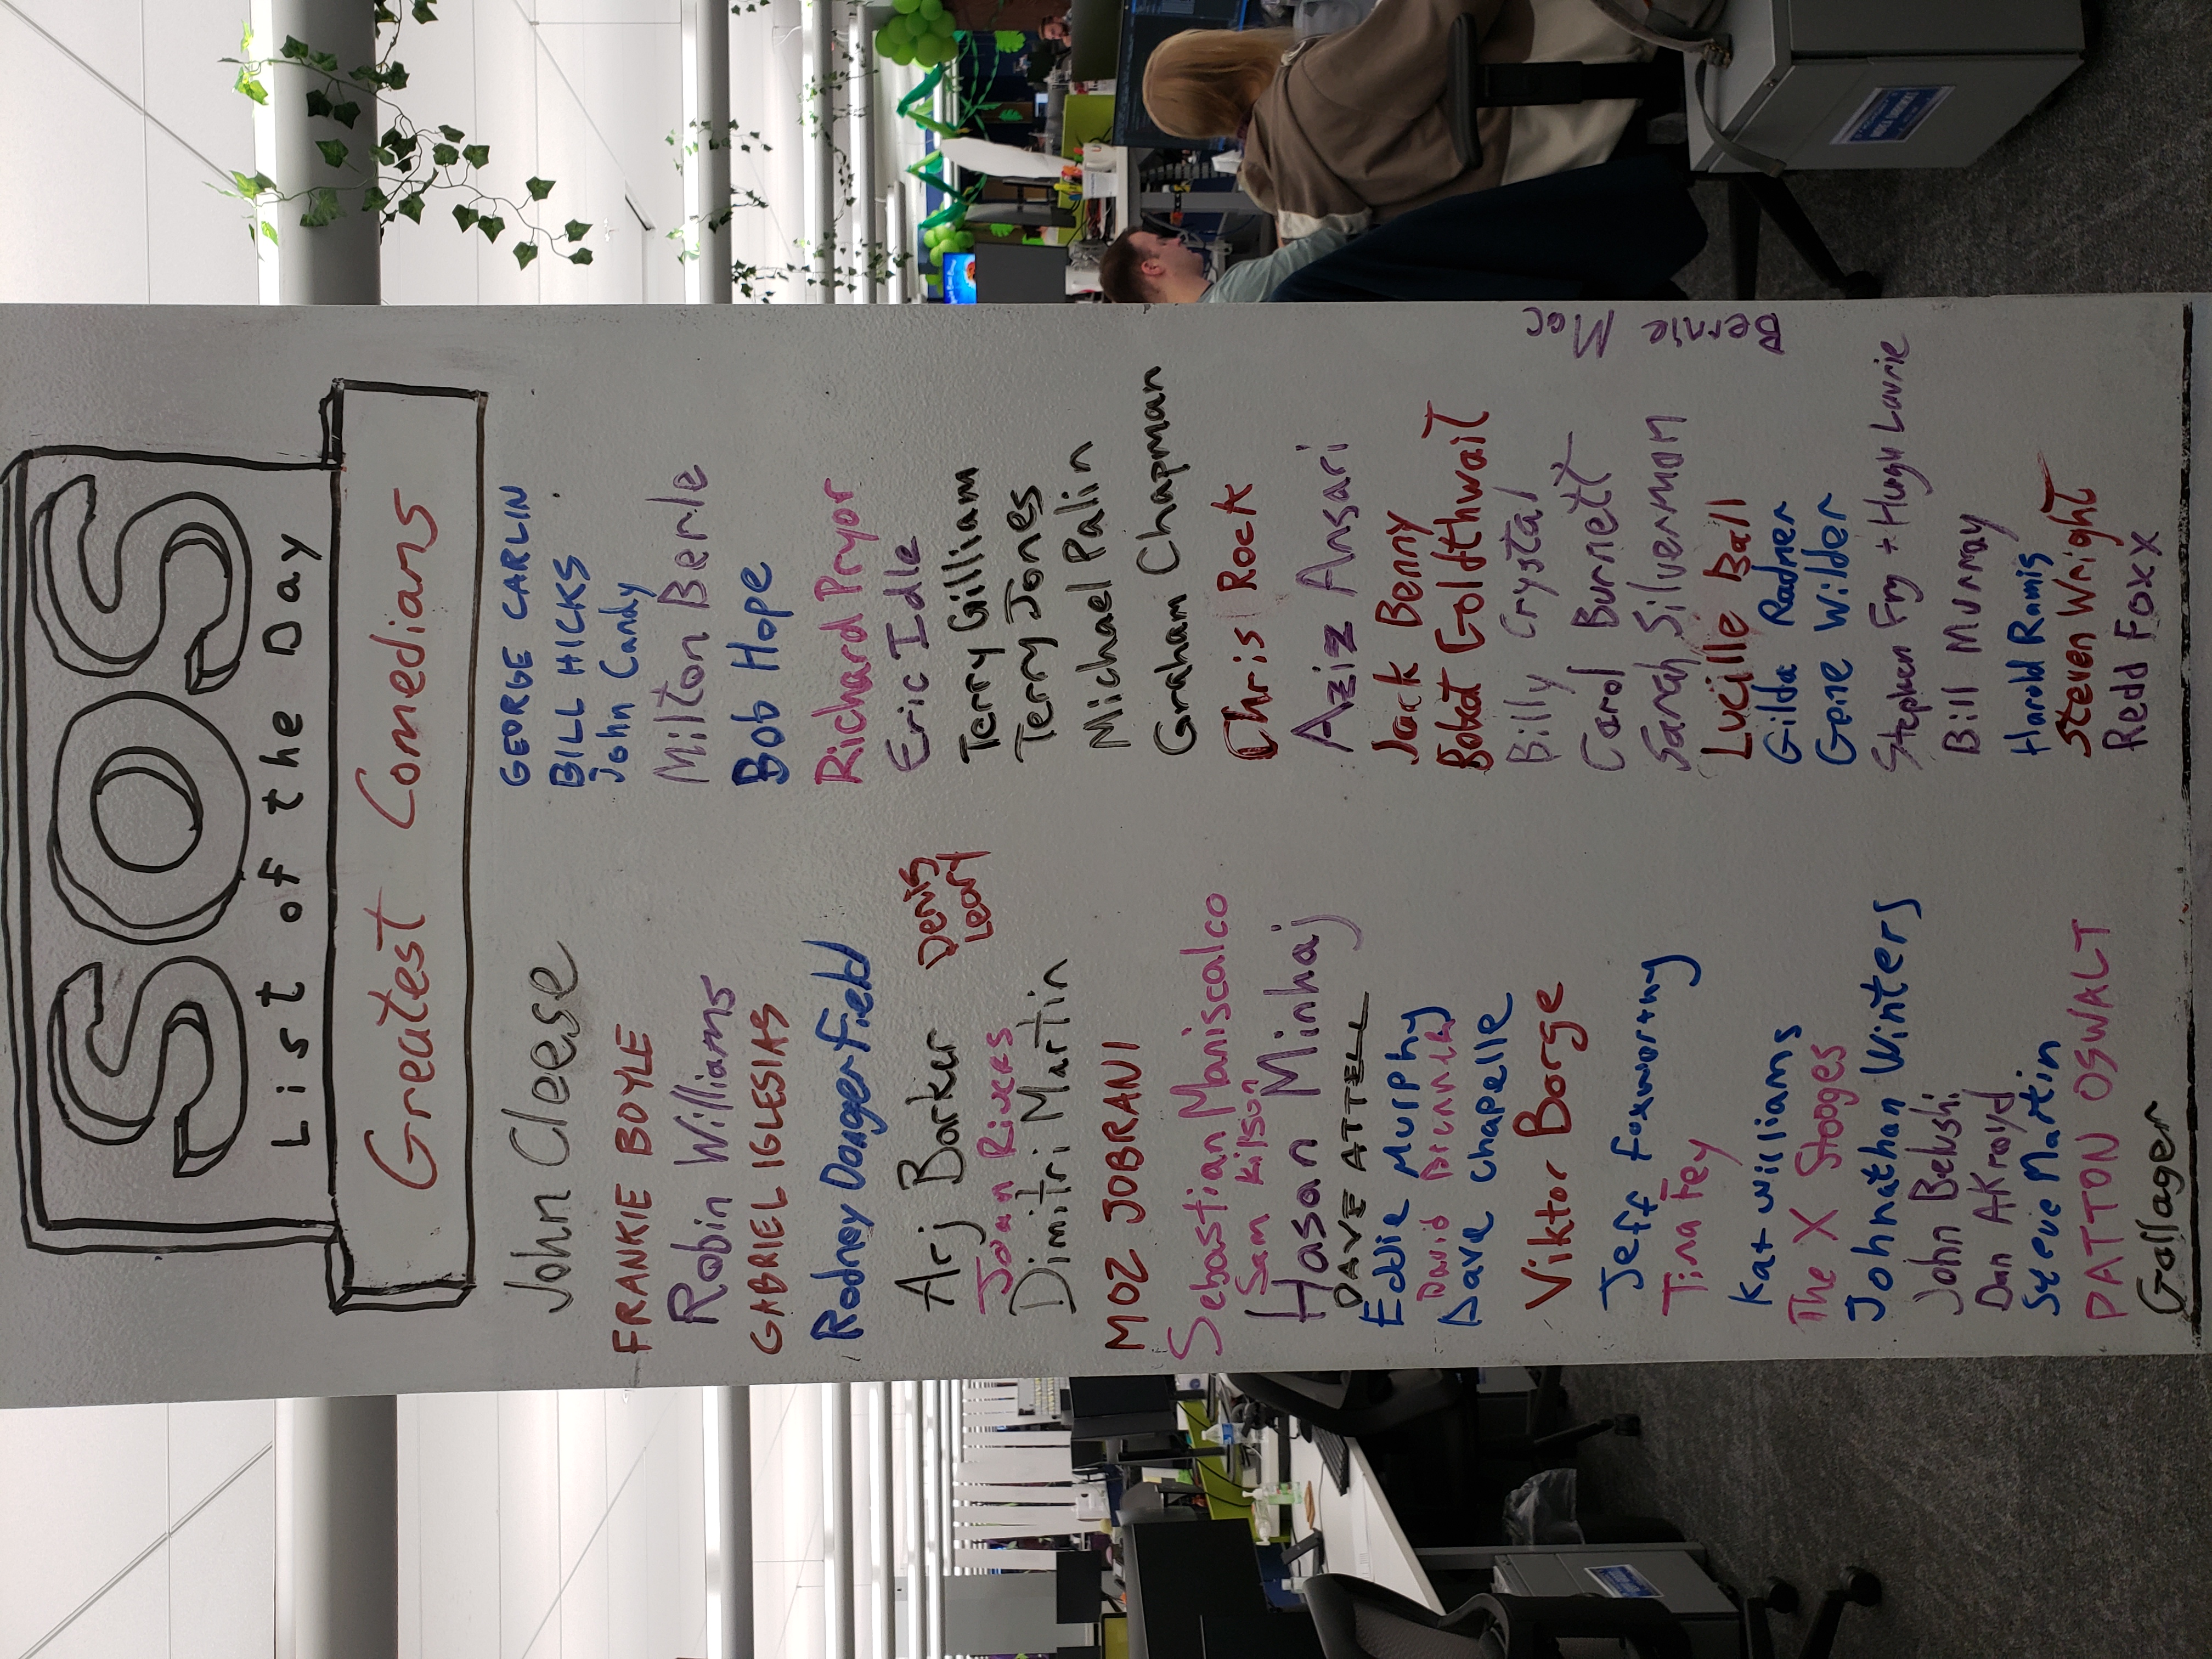 SOS
List of the Day
Greatest Comedians
John Cleese
FRANKIE BOYLE
Robin Williams
GABRIEL IGLESIAS
Rodney Dangerfield
Arj Barker
Denis
Leary
Joan Rivers
Dimitri Martin
MOZ JOBRANI
Sebastian Maniscalco
Sam Kilson
Hasan Minhaj
DAVE ATTELL
Eddie Murphy
David Brenner
Dave Chapelle
Viktor Borge
Jeff Foxworthy
Tina Fey
Kat Williams
The X Stooges
Johnathan Winters
John Belushi
Dan AKroyd
Steve Martin
PATTON OSWALT
Gallager
GEORGE CARLIN
BILL HICKS
John Candy
Milton Berle
Bob Hope
Richard Pryor
Eric Idle
Terry Gilliam
Terry Jones
Michael Palin
Graham Chapman
Chris Rock
Aziz Ansari
Jack Benny
Bobcat Goldthwait
Billy Crystal
Carol Burnett
Sarah Silverman
Lucille Ball
Gilda Radner
Gene Wilder
Stephen Fry + Hugh Laurie
Bill Murray
Harold Ramis
Steven Wright
Redd Foxx
Bernie Mac